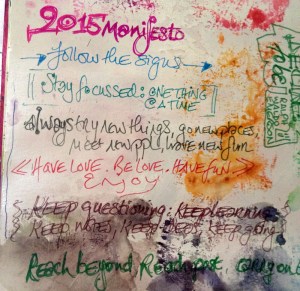 2015 Manifesto
Follow the signs
Stay focussed: ONE THING
@ A TIME
Always try new things, go new places,
meet new ppl, have new fun
HAVE LOVE. BE LOVE. HAVE FUN.
ENJOY
Keep questioning. Keep learning
Keep notes, Keep going
Reach beyond
RALPH
WALDO
EMERSON